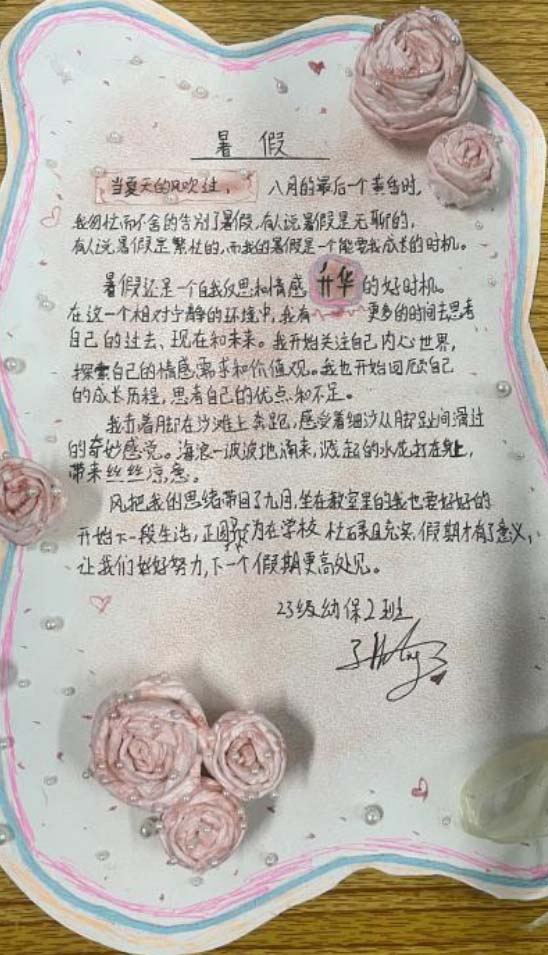 暑假
当夏天的风吹过， 八月的最后一个黄昏时，
我匆忙而不舍的告别了暑假，有人说暑假是无聊的，
有人说暑假是繁忙的，而我的暑假是一个能要我成长的时机。
暑假还是一个自我反思和情感升华的好时机。
在这一个相对宁静的环境中，我有 更多的时间去思考
自己的过去、现在和未来。我开始关注自己内心世界，
探索自己的情感需求和价值观。我也开始回顾自己
的成长历程，思考自己的优点和不足。
我赤着脚在沙滩上奔跑，感受着细沙从脚趾间滑过
的奇妙感觉。海浪一波波地涌来，溅起的水花打在身上，
带来丝丝凉意。
风把我的思绪带回了九月，坐在教室里的我也要好好的
开始下一段生活，正因为在学校忙碌且充实，假期才有了意义，
让我们好好努力，下一个假期更高处见。
23级幼保2班